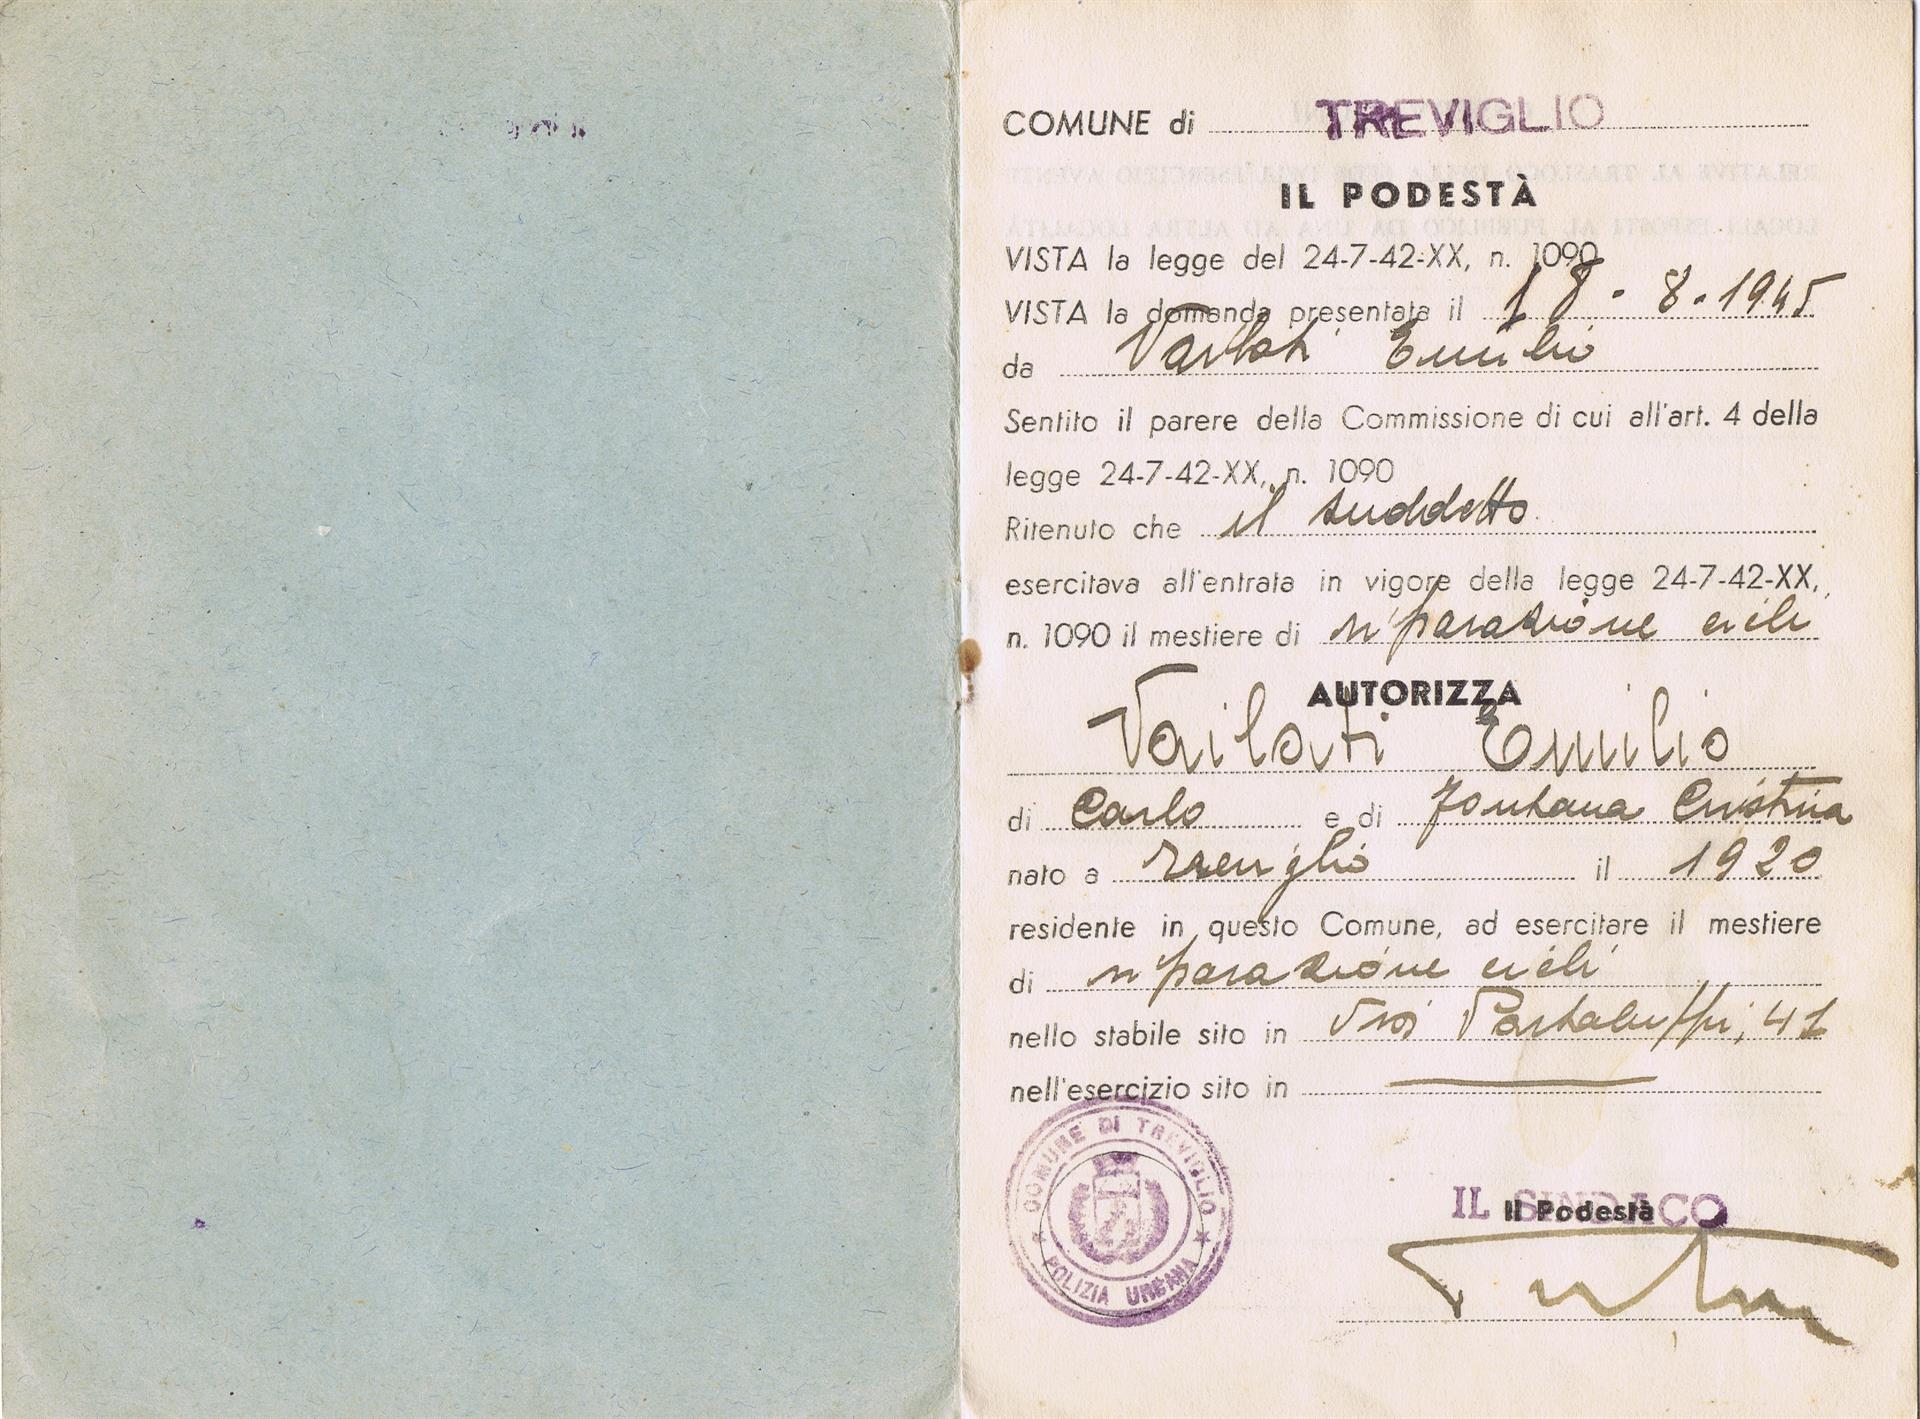 COMUNE di TREVIGLIO
IL PODESTÀ
VISTA la legge del 24-7-42-XX, n. 1090
VISTA la domanda presentata il 18-8-1945
da Vailati Emilio
Sentito il parere della Commissione di cui all'art. 4 della
legge 24-7-42-XX, n. 1090
Ritenuto che il suddetto
esercitava all'entrata in vigore della legge 24-7-42-XX,
n. 1090 il mestiere di riparazione cicli
AUTORIZZA
Vailati Emilio
di Carlo e di Fontana Cristina
nato a Treviglio il 1920
residente in questo Comune, ad esercitare il mestiere
di riparazione cicli
nello stabile sito in Via Portaluppi, 41
nell'esercizio sito in
COMUNE DI TREVIGLIO
POLIZIA URBANA
IL SINDACO
Il Podestà